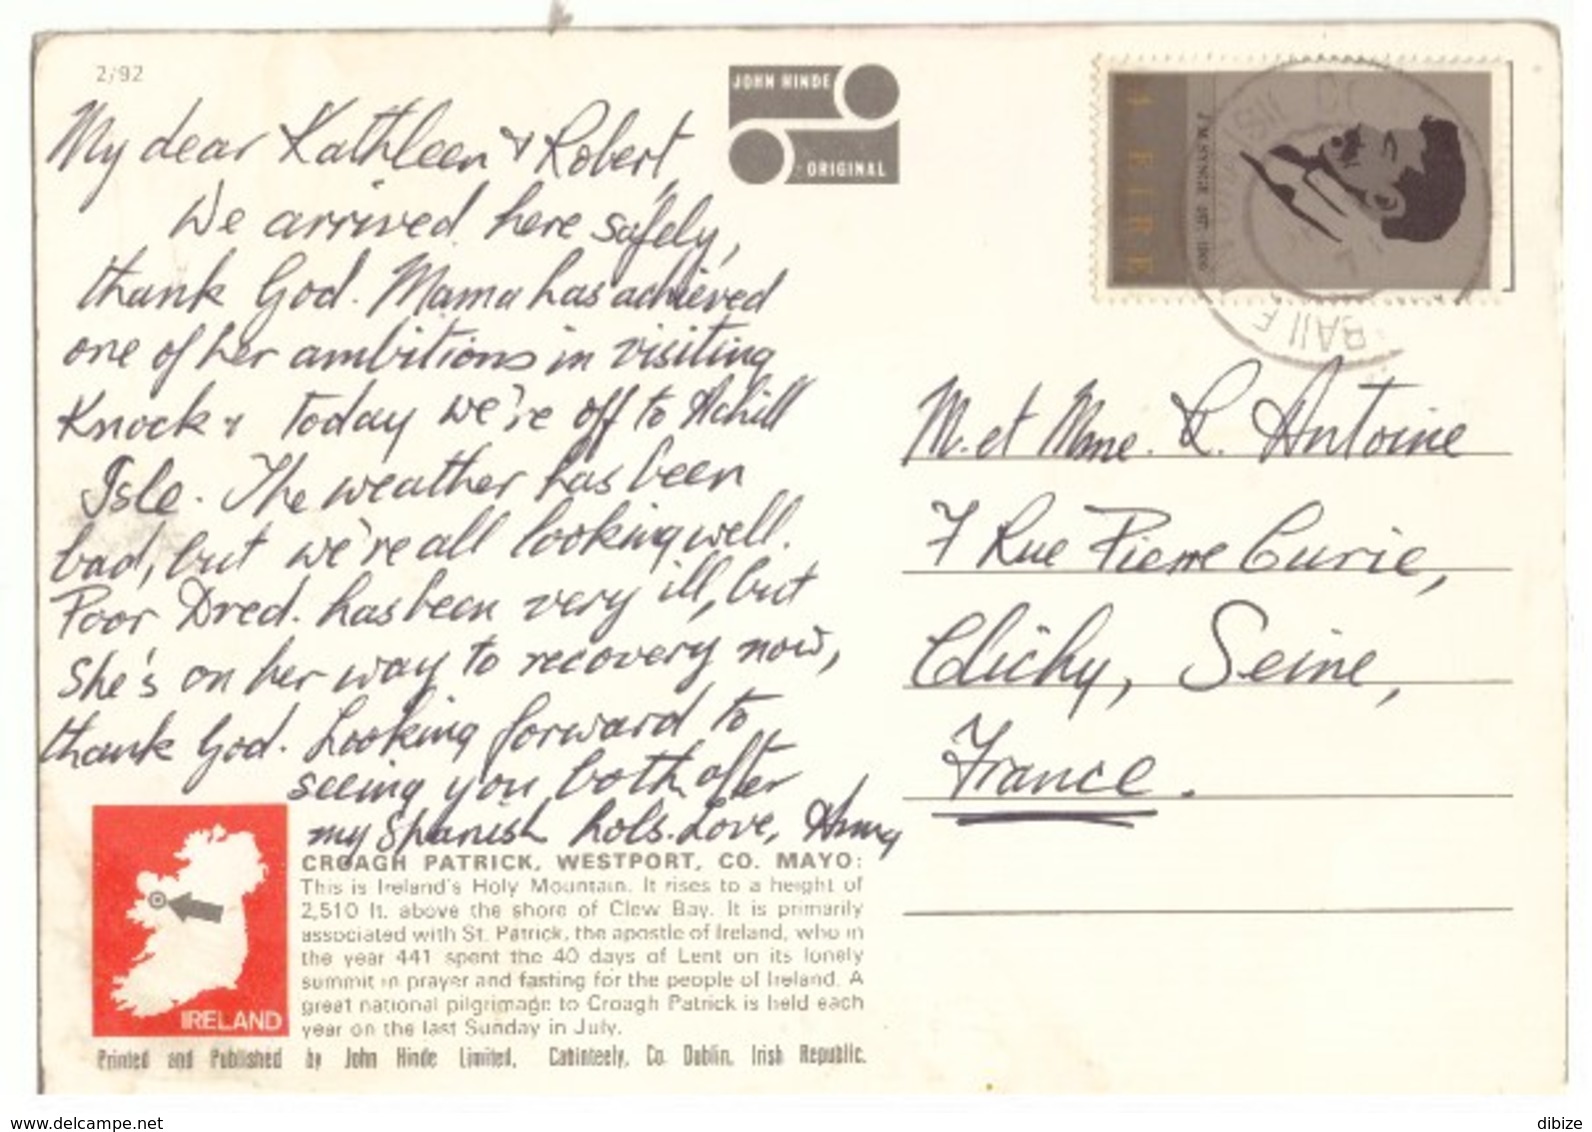 2/92
JOHN HINDE
ORIGINAL
My dear Kathleen & Robert,
We arrived here safely,
thank God. Mama has achieved
one of her ambitions in visiting
Knock & today we're off to Achill
Isle. The weather has been
bad, but we're all looking well.
Poor Dred. has been very ill, but
she's on her way to recovery now,
thank God. Looking forward to
seeing you both after
my Spanish hols. Love,
CROAGH PATRICK, WESTPORT, CO. MAYO:
This is Ireland's Holy Mountain. It rises to a height of
2,510 ft. above the shore of Clew Bay. It is primarily
associated with St. Patrick, the apostle of Ireland, who in
the year 441 spent the 40 days of Lent on its lonely
summit in prayer and fasting for the people of Ireland. A
great national pilgrimage to Croagh Patrick is held each
year on the last Sunday in July.
IRELAND
Printed and Published by John Hinde Limited, Cabinteely, Co. Dublin, Irish Republic.
EIRE
J M SYNGE
BAILE
M. et Mme. R. Antoine
7 Rue Pierre Curie,
Clichy, Seine,
France.
www.delcampe.net
dibize